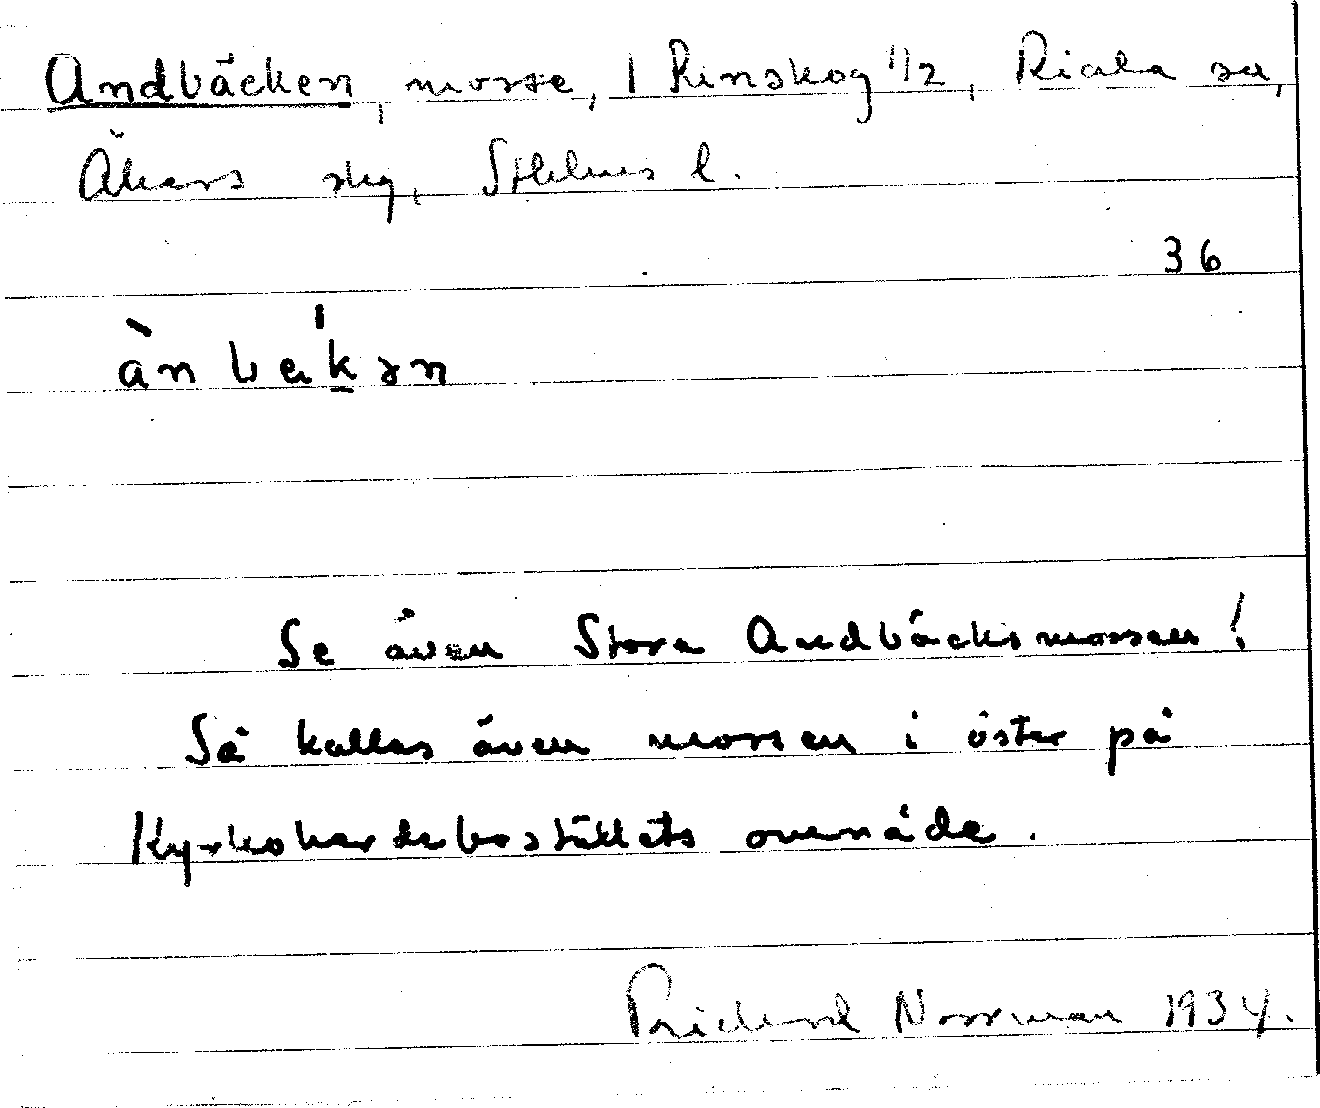 Andbäcken, mosse, 1 Rinskog 1/2, Riala sn,
Åkers skg, Sthlms l.
36
ànbäkən
Se även Stora Andbäcksmossen!
Så kallas även mossen i öster på
Kyrkoherdebostället område.
Richard Norrman 1934.